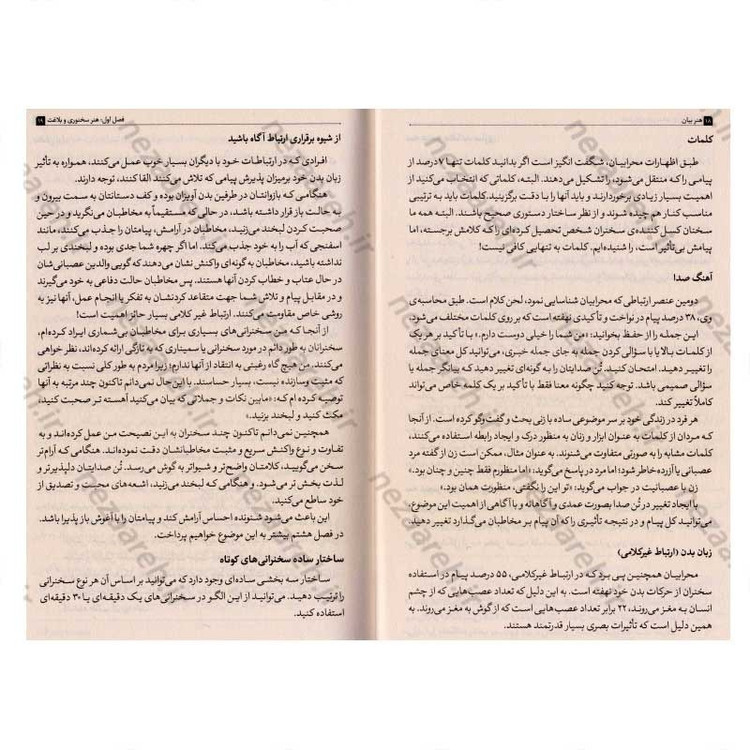 ۱۸ هنر بیان
کلمات
طبق اظهارات محرابیان، شگفت انگیز است اگر بدانید کلمات تنها ۷درصد از
پیامی را که منتقل می‌شود، را تشکیل می‌دهند. البته، کلماتی که انتخاب می‌کنید از
اهمیت بسیار زیادی برخوردارند و باید آنها را با دقت برگزینید. کلمات باید به ترتیبی
مناسب کنار هم چیده شوند و از نظر ساختار دستوری صحیح باشند. البته همه ما
سخنان کسل کننده‌ی سخنران شخص تحصیل کرده‌ای را که کلامش برجسته، اما
پیامش بی‌تأثیر است، را شنیده‌ایم. کلمات به تنهایی کافی نیست!
آهنگ صدا
دومین عنصر ارتباطی که محرابیان شناسایی نمود، لحن کلام است. طبق محاسبه‌ی
وی، ۳۸ درصد پیام در نواخت و تأکیدی نهفته است که بر روی کلمات مختلف می‌شود.
این جمله را از حفظ بخوانید: «من شما را خیلی دوست دارم.» با تأکید بر هر یک
از کلمات بالا یا با سؤالی کردن جمله به جای جمله خبری، می‌توانید کل معنای جمله
را تغییر دهید. امتحان کنید. تُن صدایتان را به گونه‌ای تغییر دهید که بیانگر جمله یا
سؤالی صمیمی باشد. توجه کنید چگونه معنا فقط با تأکید بر یک کلمه خاص می‌تواند
کاملاً تغییر کند.
هر فرد در زندگی خود بر سر موضوعی ساده با زنی بحث و گفت‌وگو کرده است. از آنجا
که مردان از کلمات به عنوان ابزار و زنان به منظور درک و ایجاد رابطه استفاده می‌کنند،
کلمات مشابه را به صورتی متفاوت می‌شنوند. به عنوان مثال، ممکن است زن از گفته مرد
عصبانی یا آزرده خاطر شود؛ اما مرد در پاسخ می‌گوید: «اما منظورم فقط چنین و چنان بود.»
زن با عصبانیت در جواب می‌گوید: «تو این را نگفتی، منظورت همان بود.»
با ایجاد تغییر در تُن صدا بصورت عمدی و آگاهانه و با آگاهی از اهمیت این موضوع،
می‌توانید کل پیام و در نتیجه تأثیری را که آن پیام بر مخاطبان می‌گذارد تغییر دهید.
زبان بدن (ارتباط غیرکلامی)
محرابیان همچنین پی برد که در ارتباط غیرکلامی، ۵۵ درصد پیام در استفاده
سخنران از حرکات بدن خود نهفته است. به این دلیل که تعداد عصب‌هایی که از چشم
انسان به مغز می‌روند، ۲۲ برابر تعداد عصب‌هایی است که از گوش به مغز می‌روند. به
همین دلیل است که تأثیرات بصری بسیار قدرتمند هستند.
فصل اول: هنر سخنوری و بلاغت ۱۹
از شیوه برقراری ارتباط آگاه باشید
افرادی که در ارتباطات خود با دیگران بسیار خوب عمل می‌کنند، همواره به تأثیر
زبان بدن خود برمیزان پذیرش پیامی که تلاش می‌کنند القا کنند، توجه دارند.
هنگامی که بازوانتان در طرفین بدن آویزان بوده و کف دستانتان به سمت بیرون و
به حالت باز قرار داشته باشد، در حالی که مستقیماً به مخاطبان می‌نگرید و در حین
صحبت کردن لبخند می‌زنید، مخاطبان در آرامش، پیامتان را جذب می‌کنند، مانند
اسفنجی که آب را به خود جذب می‌کند. اما اگر چهره شما جدی بوده و لبخندی بر لب
نداشته باشید، مخاطبان به گونه‌ای واکنش نشان می‌دهند که گویی والدین عصبانی‌شان
در حال عتاب و خطاب کردن آنها هستند. پس مخاطبان حالت دفاعی به خود می‌گیرند
و در مقابل پیام و تلاش شما جهت متقاعد کردنشان به تفکر یا انجام عمل، آنها نیز به
روشی خاص مقاومت می‌کنند. ارتباط غیر کلامی بسیار حائز اهمیت است!
از آنجا که من سخنرانی‌های بسیاری برای مخاطبان بی‌شماری ایراد کرده‌ام،
سخنرانان به طور دائم در مورد سخنرانی یا سمیناری که به تازگی ارائه کرده‌اند، نظر خواهی
می‌کنند. من هیچ گاه رغبتی به انتقاد از آنها ندارم؛ زیرا مردم به طور کلی نسبت به نظراتی
که مثبت وسازنده نیست، بسیار حساسند. با این حال نمی‌دانم تاکنون چند مرتبه به آنها
توصیه کرده ام که: «مابین نکات و جملاتی که بیان می‌کنید آهسته تر صحبت کنید،
مکث کنید و لبخند بزنید.»
همچنین نمی‌دانم تاکنون چند سخنران به این نصیحت من عمل کرده‌اند و به
تفاوت و نوع واکنش سریع و مثبت مخاطبانشان دقت نموده‌اند. هنگامی که آرام‌تر
سخن می‌گویید، کلامتان واضح‌تر و شیواتر به گوش می‌رسد. تُن صدایتان دلپذیرتر و
لذت بخش تر می‌شود. و هنگامی که لبخند می‌زنید، اشعه‌های محبت و تصدیق از
خود ساطع می‌کنید.
این باعث می‌شود شنونده احساس آرامش کند و پیامتان را با آغوش باز پذیرا باشد.
در فصل هشتم بیشتر به این موضوع خواهیم پرداخت.
ساختار ساده سخنرانی‌های کوتاه
ساختار سه بخشی ساده‌ای وجود دارد که می‌توانید بر اساس آن هر نوع سخنرانی
را ترتیب دهید. می‌توانید از این الگو در سخنرانی‌های یک دقیقه‌ای یا ۳۰ دقیقه‌ای
استفاده کنید.
nezaareh.ir